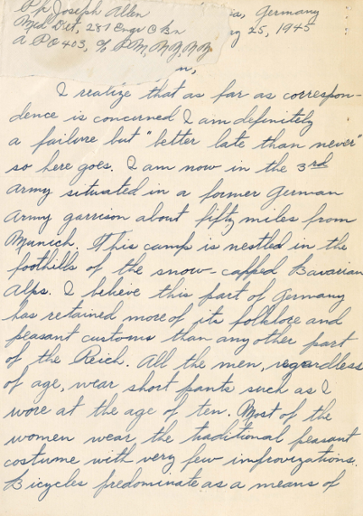 Pfc Joseph Allen
Med Det, 287 Engr C Bn
A PO 403, % P.M., N.Y., N.Y.
Germany
25, 1945
I realize that as far as correspon-
dence is concerned I am definitely
a failure but "better late than never"
so here goes. I am now in the 3rd
Army situated in a former German
Army garrison about fifty miles from
Munich. This camp is nestled in the
foothills of the snow-capped Bavarian
Alps. I believe this part of Germany
has retained more of its folklore and
peasant customs than any other part
of the Reich. All the men, regardless
of age, wear short pants such as I
wore at the age of ten. Most of the
women wear the traditional peasant
costume with very few improvizations.
Bicycles predominate as a means of